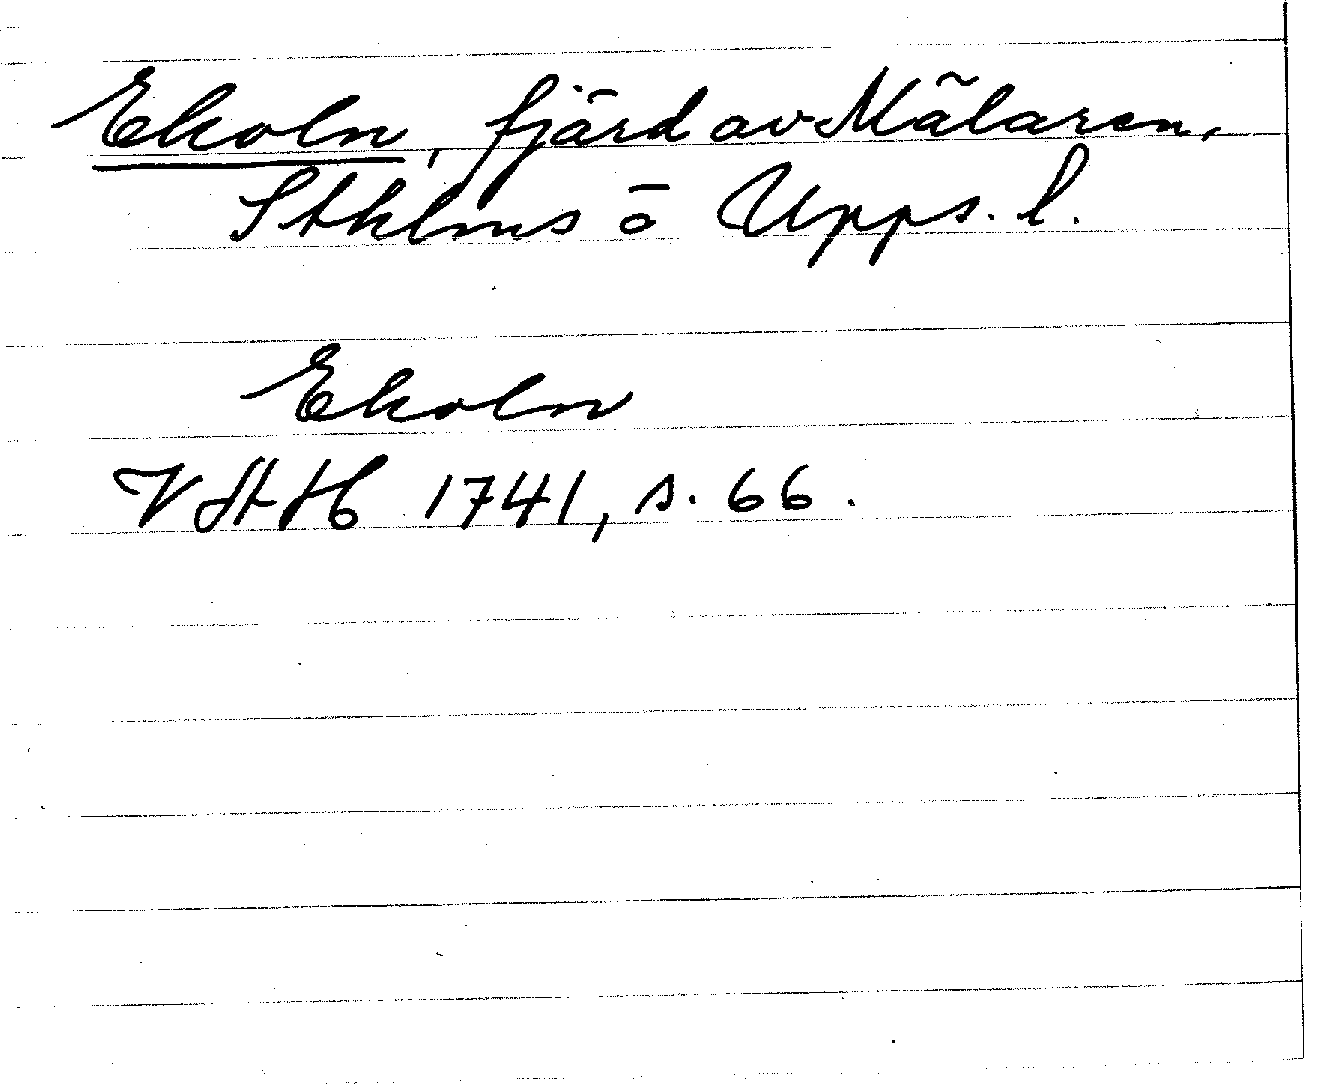 Ekoln, fjärd av Mälaren,
Stklms o Upps. l.
Ekoln
VAH 1741, s. 66.